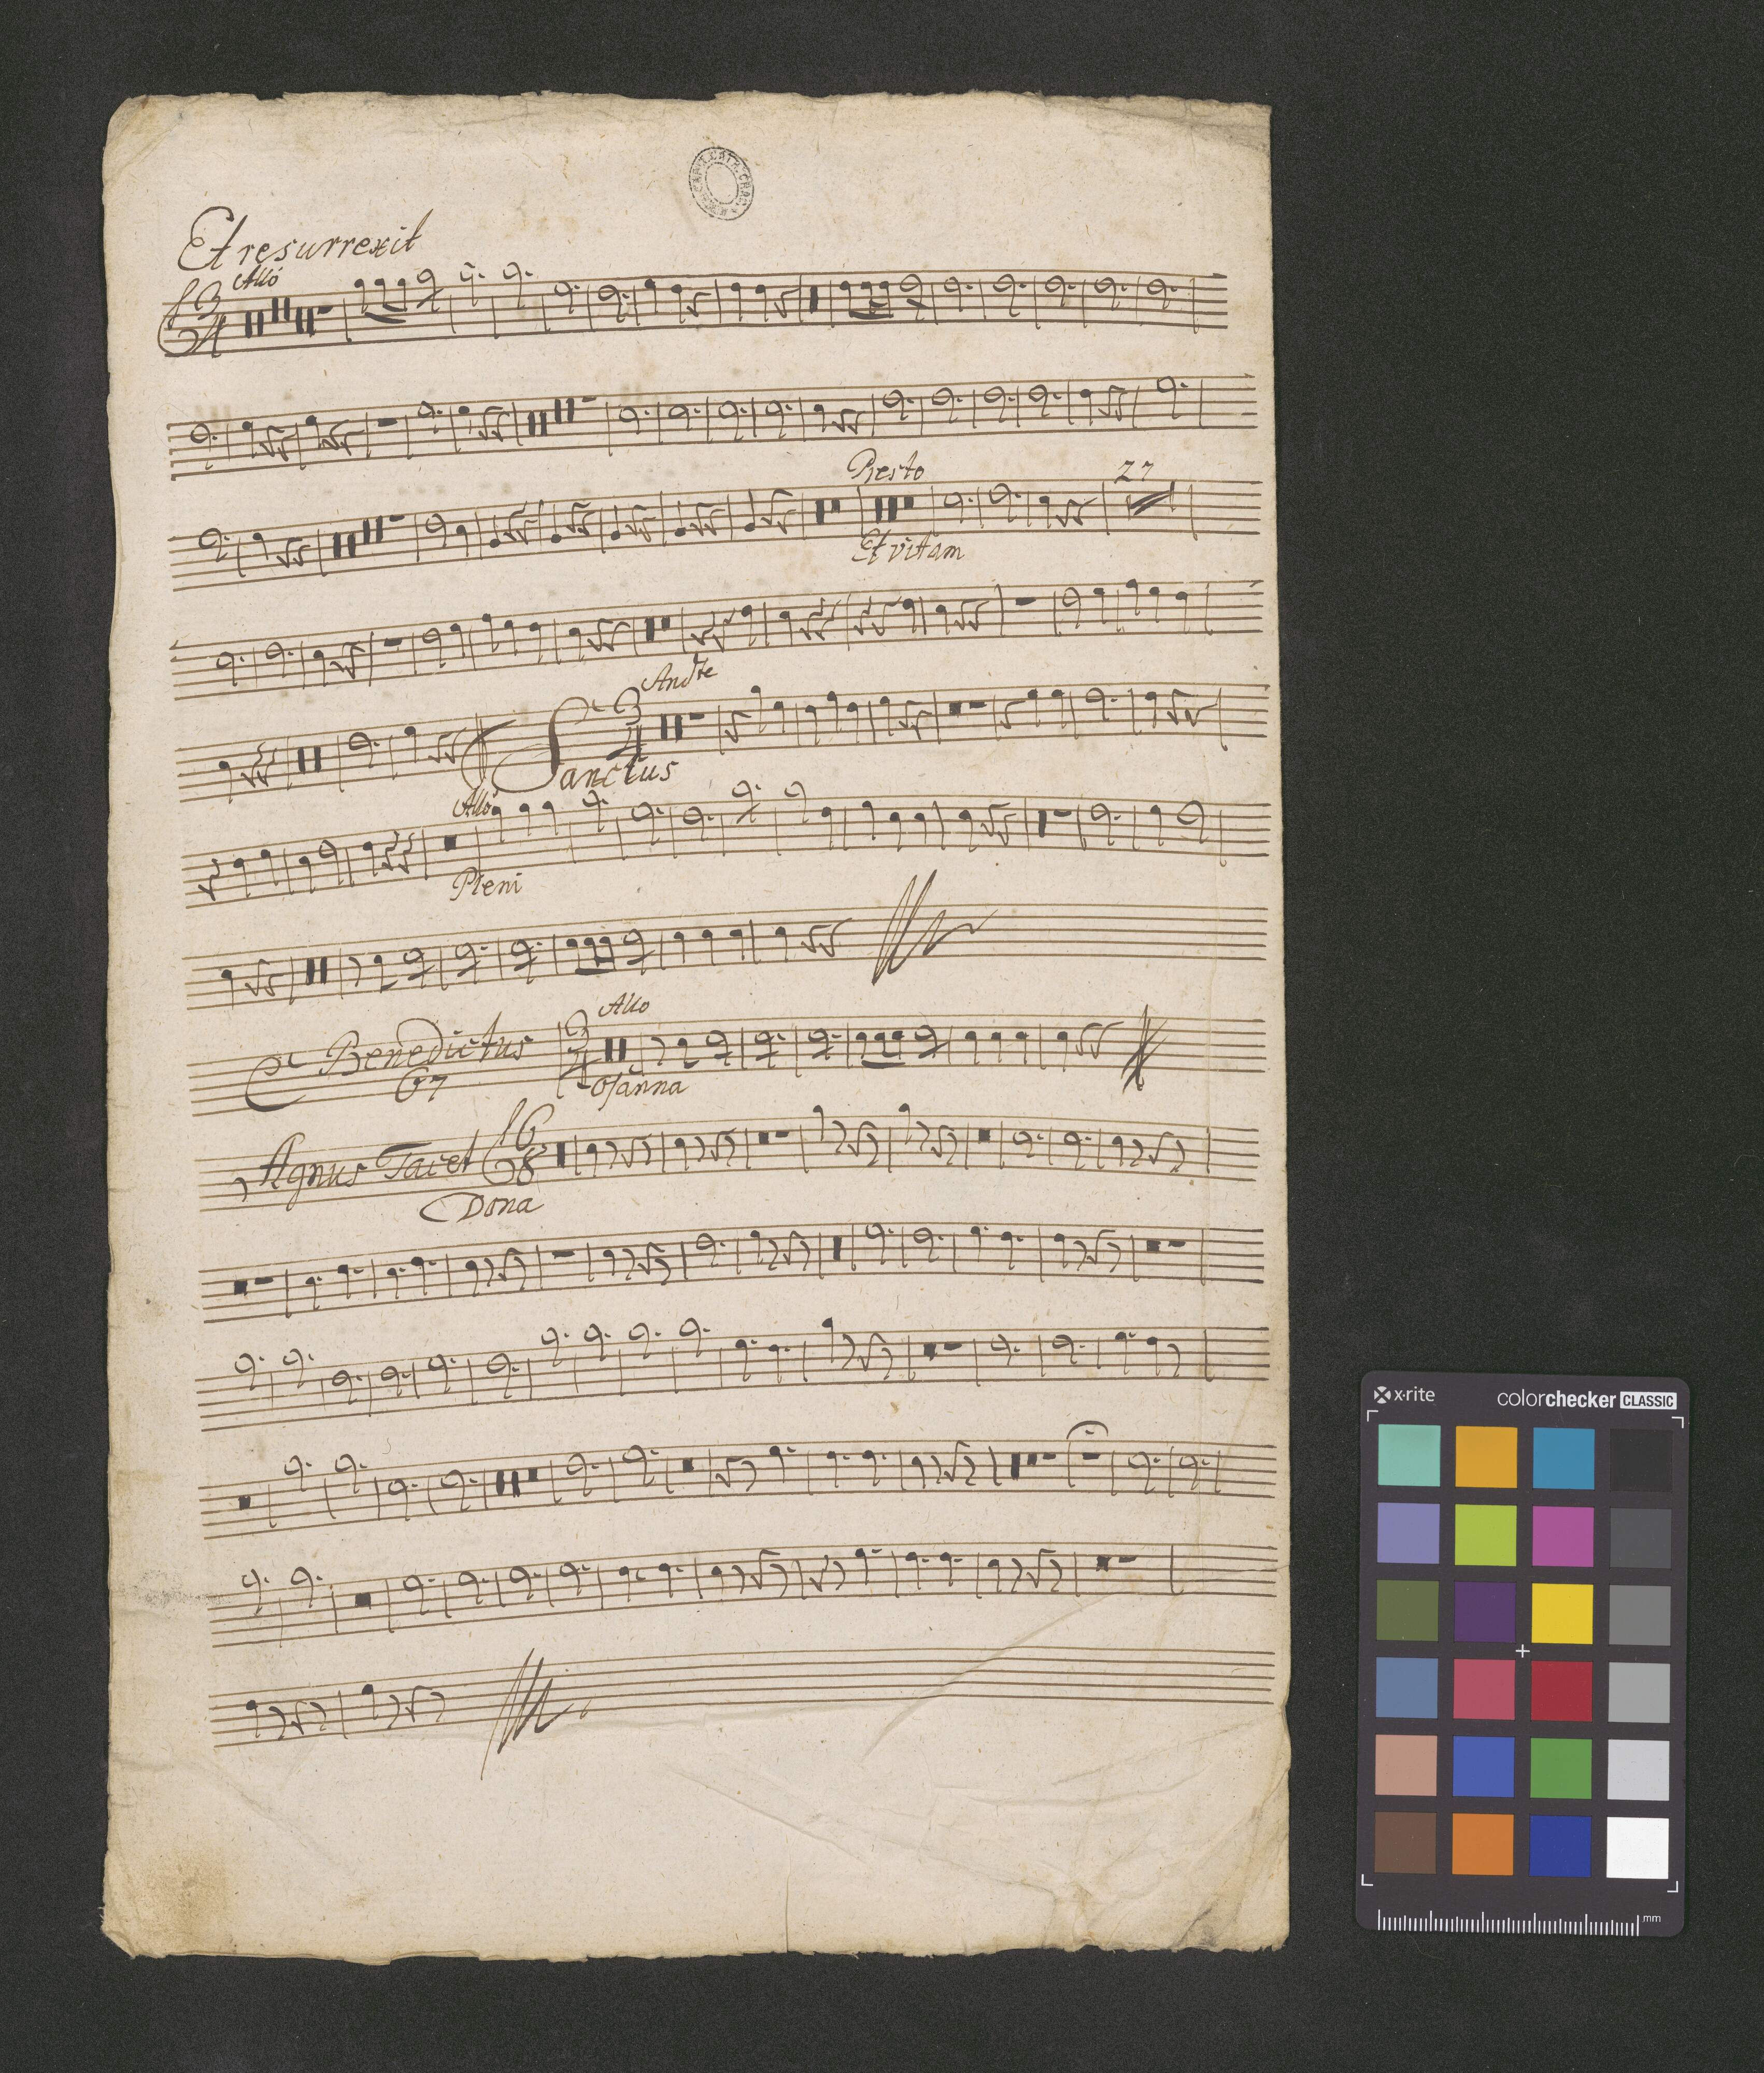 Et resurrexit
3 Allo
4
Presto
27
Et vitam
Andte
3
4
Sanctus
Allo
Pleni
Allo
Benedictus 3
67 4 Osanna
Agnus Tacet 6
8
Dona
x-rite colorchecker CLASSIC
mm